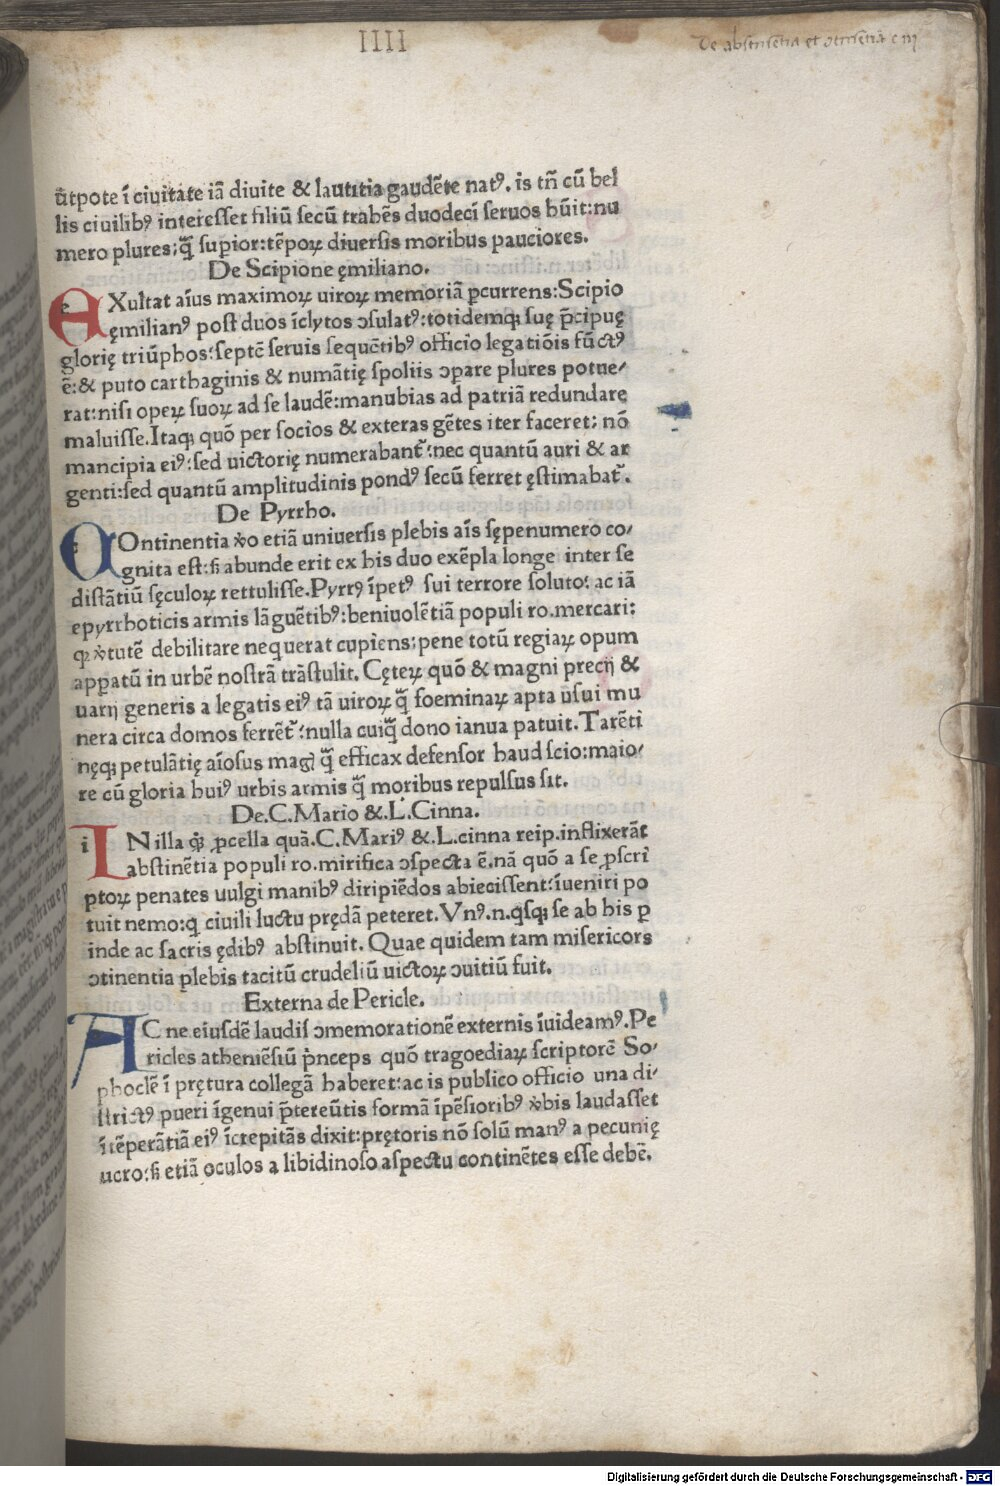 IIII
De abstinentia et cōtinētia c iij
ūtpote ī ciuitate iā diuite & lautitia gaudēte natꝰ. is tn̄ cū bel
lis ciuilibꝰ interesset filiū secū trabēs duodecī seruos hūit:nu
mero plures;q̄̄ supior:tēpoꝝ diuersis moribus pauciores.
De Scipione ęmiliano.
EXultat aīus maximoꝝ uiroꝝ memoriā ꝑcurrens:Scipio
ęmilianꝰ post duos īclytos ↄsulatꝰ:totidemqꝫ suę p̄cipuę
glorię triūphos:septē seruis sequētibꝰ officio legatiōis fūctꝰ
ē:& puto carthaginis & numātię spoliis ↄpare plures potue⸗
rat:nisi opeꝝ suoꝝ ad se laudē:manubias ad patriā redundare
maluisse.Itaqꝫ quō per socios & exteras gētes iter faceret: nō
mancipia eiꝰ:sed uictorię numerabant̄:nec quantū auri & ar
genti:sed quantū amplitudinis pondꝰ secū ferret ęstimabat̄.
De Pyrrho.
COntinentia v̊o etiā uniuersis plebis aīs sępenumero co⸗
gnita est:s̄i abunde erit ex his duo exēpla longe inter se
distātiū sęculoꝝ rettulisse.Pyrrꝰ īpetꝰ sui terrore soluto: ac iā
epyrrhoticis armis lāguētibꝰ:beniuolētiā populi ro.mercari:
qꝫ v̊tutē debilitare nequerat cupiens:pene totū regiaꝝ opum
apparatū in urbē nostrā trāstulit. Cęteꝝ quō & magni precij &
uarij generis a legatis eiꝰ tā uiroꝝ q̄̄ foeminaꝝ apta usui mu
nera circa domos ferrēt̄:nulla cuiq̄̄ dono ianua patuit.Tarēti
nęqꝫ petulātię aīosus magꝭ q̄̄ efficax defensor haud scio:maio⸗
re cū gloria huiꝰ urbis armis q̄̄ moribus repulsus sit.
De.C.Mario &.L.Cinna.
INilla qꝫ ꝓcella quā.C.Mariꝰ &.L.cinna reip.inflixerāt
abstinētia populi ro.mirifica ↄspecta ē.nā quō a se ꝓscri
ptoꝝ penates uulgi manibꝰ diripiēdos abiecissent:īueniri po
tuit nemo:q̇ ciuili luctu prędā peteret.Vnꝰ.n.q̇sqꝫ se ab his ꝑ
inde ac sacris ędibꝰ abstinuit. Quae quidem tam misericors
ↄtinentia plebis tacitū crudeliū uictoꝝ ↄuitiū fuit.
Externa de Pericle.
AC ne eiusdē laudis ↄmemorationē externis īuideamꝰ.Pe
ricles atheniēsiū p̄nceps quō tragoediaꝝ scriptorē So⸗
phoclē ī prętura collegā haberet:ac is publico officio una di⸗
strictꝰ pueri īgenui p̄tereūtis formā īpēsioribꝰ v̊bis laudasset
ītēperātiā eiꝰ īcrepitās dixit:prętoris nō solū manꝰ a pecunię
ucro:s̄i etiā oculos a libidinoso aspectu continētes esse debē.
Digitalisierung gefördert durch die Deutsche Forschungsgemeinschaft - DFG